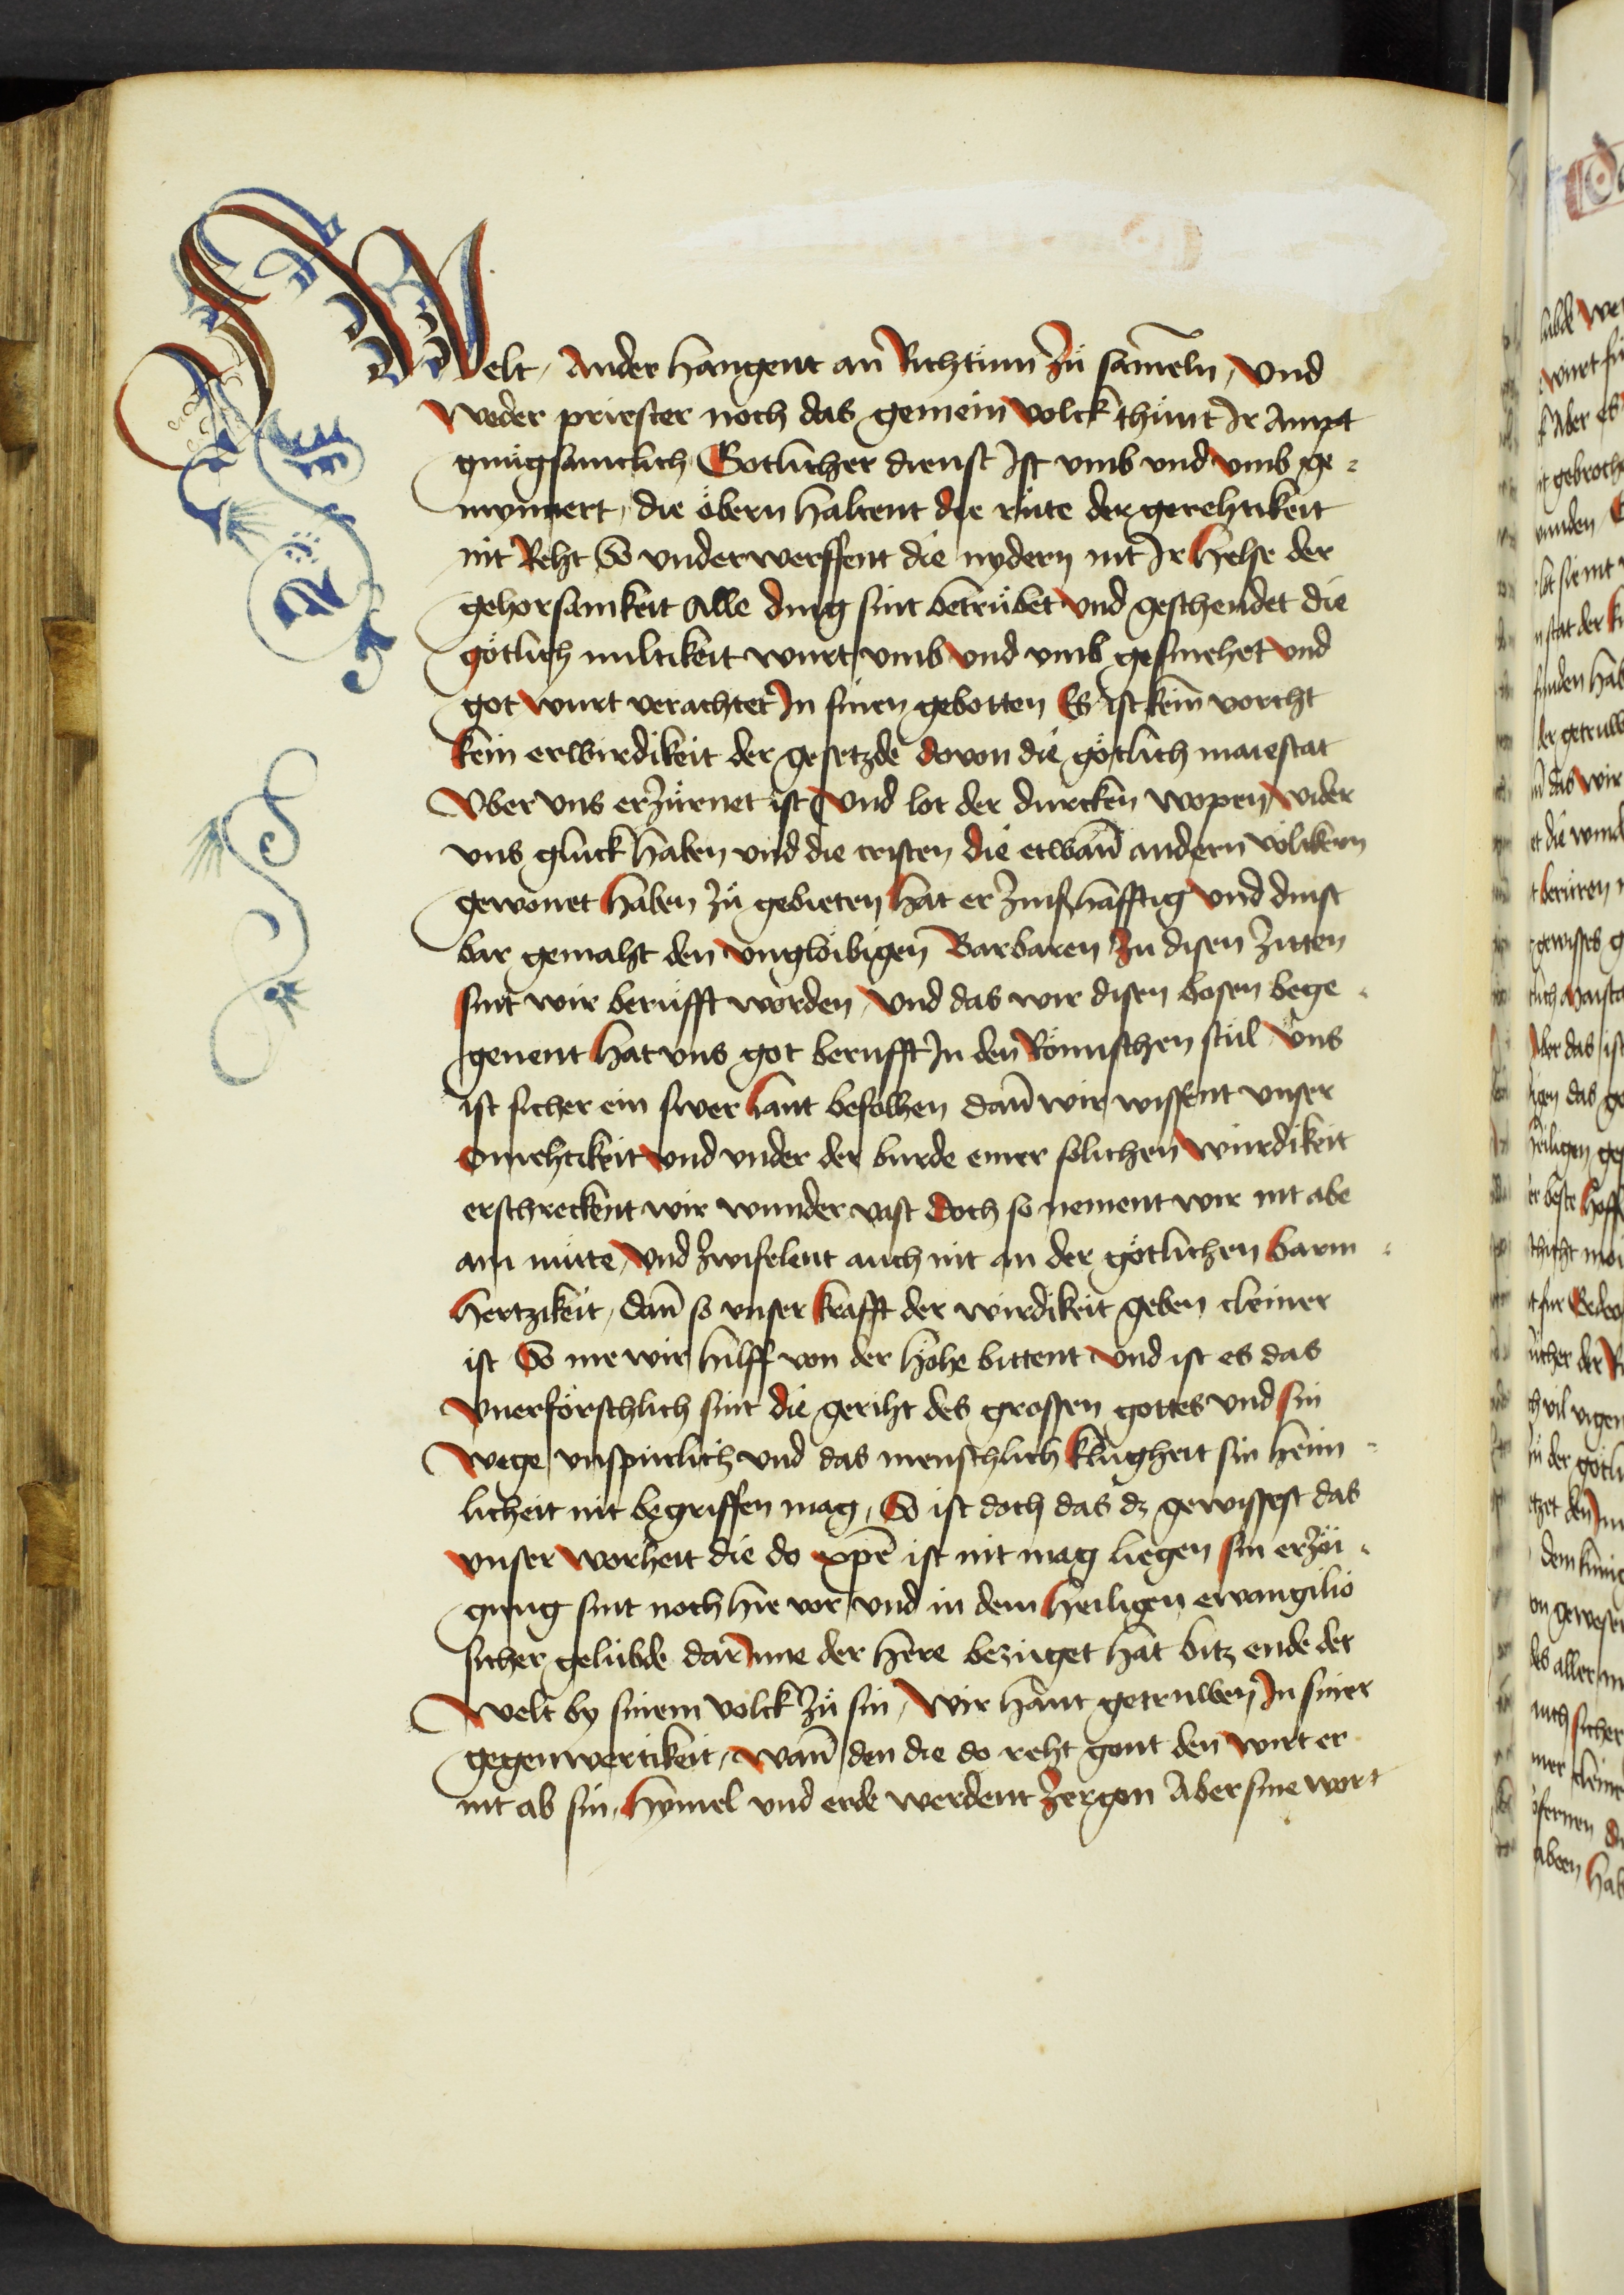 Welt, Ander hangent an Richtum zů sam̄eln, Und
weder priester noch das gemein volck thůnt Ir Ampt
gnůgsamclich Gotlicher dienst Ist vmb vnd vmb ge-
mynnert, die öbern haltent die růte der gerehtikeit
nit Reht So vnderwerffent die nydern nit Ir helse der
gehorsamkeit Alle ding sint betrübet vnd geschendet die
götlich miltikeit wurt vmb vnd vmb gesmehet vnd
got wurt verachtet In sinen gebotten Es ist kein vorcht
kein erwirdikeit der gesetzde dovon die götlich maiestat
Vber vns erzürnet ist Vnd lot der durcken wopen wider
vns gluck haben vnd die cristen die etwan̄ andern völckern
gewonet haben zů gebieten hat er zinsshafftig vnd dinst
bar gemaht den vnglöibigen Barbaren Zu disen zitten
sint wir berůfft worden, Vnd das wir disen bosen bege-
genent hat vns got berufft In den Römischen stůl Vns
ist sicher ein swer hant befolhen dan̄ wir wissent vnser
Omehtikeit vnd vnder der burde einer solichen wurdikeit
erschreckent wir wunder vast Doch so nement wir nit abe
am můtte, Vnd zwifelent auch nit an der götlichen barm-
hertzikeit, dan̄ so vnser krafft der wirdikeit geben cleiner
ist So me wir hilff von der höhe bittent Vnd ist es das
Vnerförschlich sint die geriht des grossen gottes vnd sin
wege vnspurlich vnd das menschlich klůgheit sin heim-
licheit nit begriffen mag, So ist doch das dz gewissest das
vnser worheit die do xp̄c ist nit mag liegen sin erzöi-
gung sint noch hie vor vnd in dem heiligen ewangilio
sicher gelübde dar Inne der here bezuget hat bitz ende der
welt by sinem volck zů sin, Wir hant getruwen In siner
gegenwertikeit, wan̄ den die do reht gont den wirt er
nit ab sin, Hymel vnd erde werdent zergon Aber sine wort